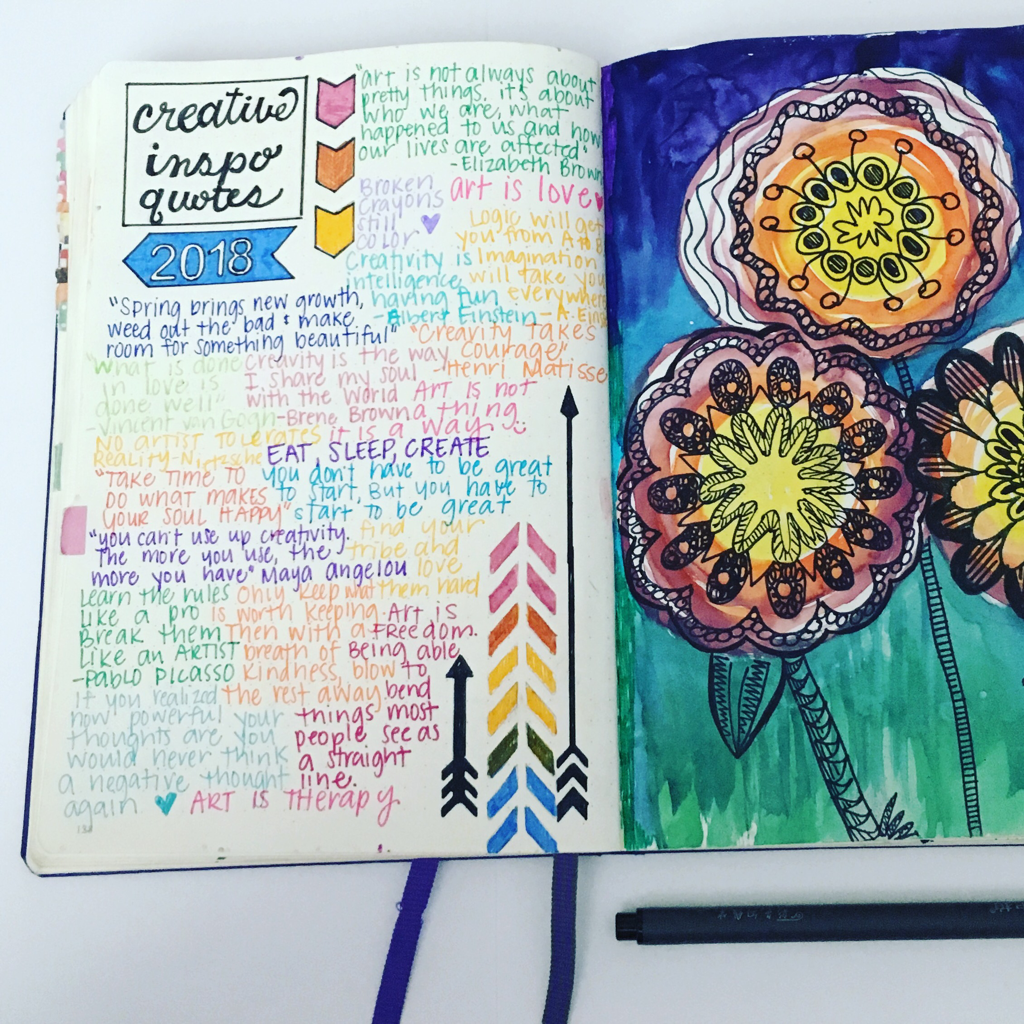 creative
inspo
quotes
2018
"art is not always about
pretty things. it's about
who we are, what
happened to us and how
our lives are affected"
-Elizabeth Brown
Broken
crayons
still
color
art is love
Logic will get
you from A to B
Imagination
will take you
everywhere
- A. Eins
Creativity is
intelligence
having fun
-Albert Einstein
"Spring brings new growth,
weed out the bad & make
room for something beautiful"
"Creavity takes
courage"
-Henri Matisse
"What is done
in love is
done well"
-Vincent van Gogh
Creavity is the way
I share my soul
with the world
-Brene Brown
ART IS not
a thing
it is a way
NO ARTIST TOLERATES
REALITY-Nitzsche
EAT, SLEEP, CREATE
"TAKE TIME TO
DO WHAT MAKES
YOUR SOUL HAPPY"
you don't have to be great
to start, But you have to
start to be great
"you can't use up creativity.
The more you use, the
more you have" Maya angelou
Find your
tribe and
love
them hard
Learn the rules
Like a pro
Break them
Like an ARTIST
-PABLO PICASSO
Only keep what
is worth keeping.
Then with a
breath of
kindness, blow
the rest away
Art is
FREEDOM.
Being able
to
bend
things most
people see as
a straight
line.
If you realized
how powerful your
thoughts are you
would never think
a negative thought
again
ART IS THERAPY